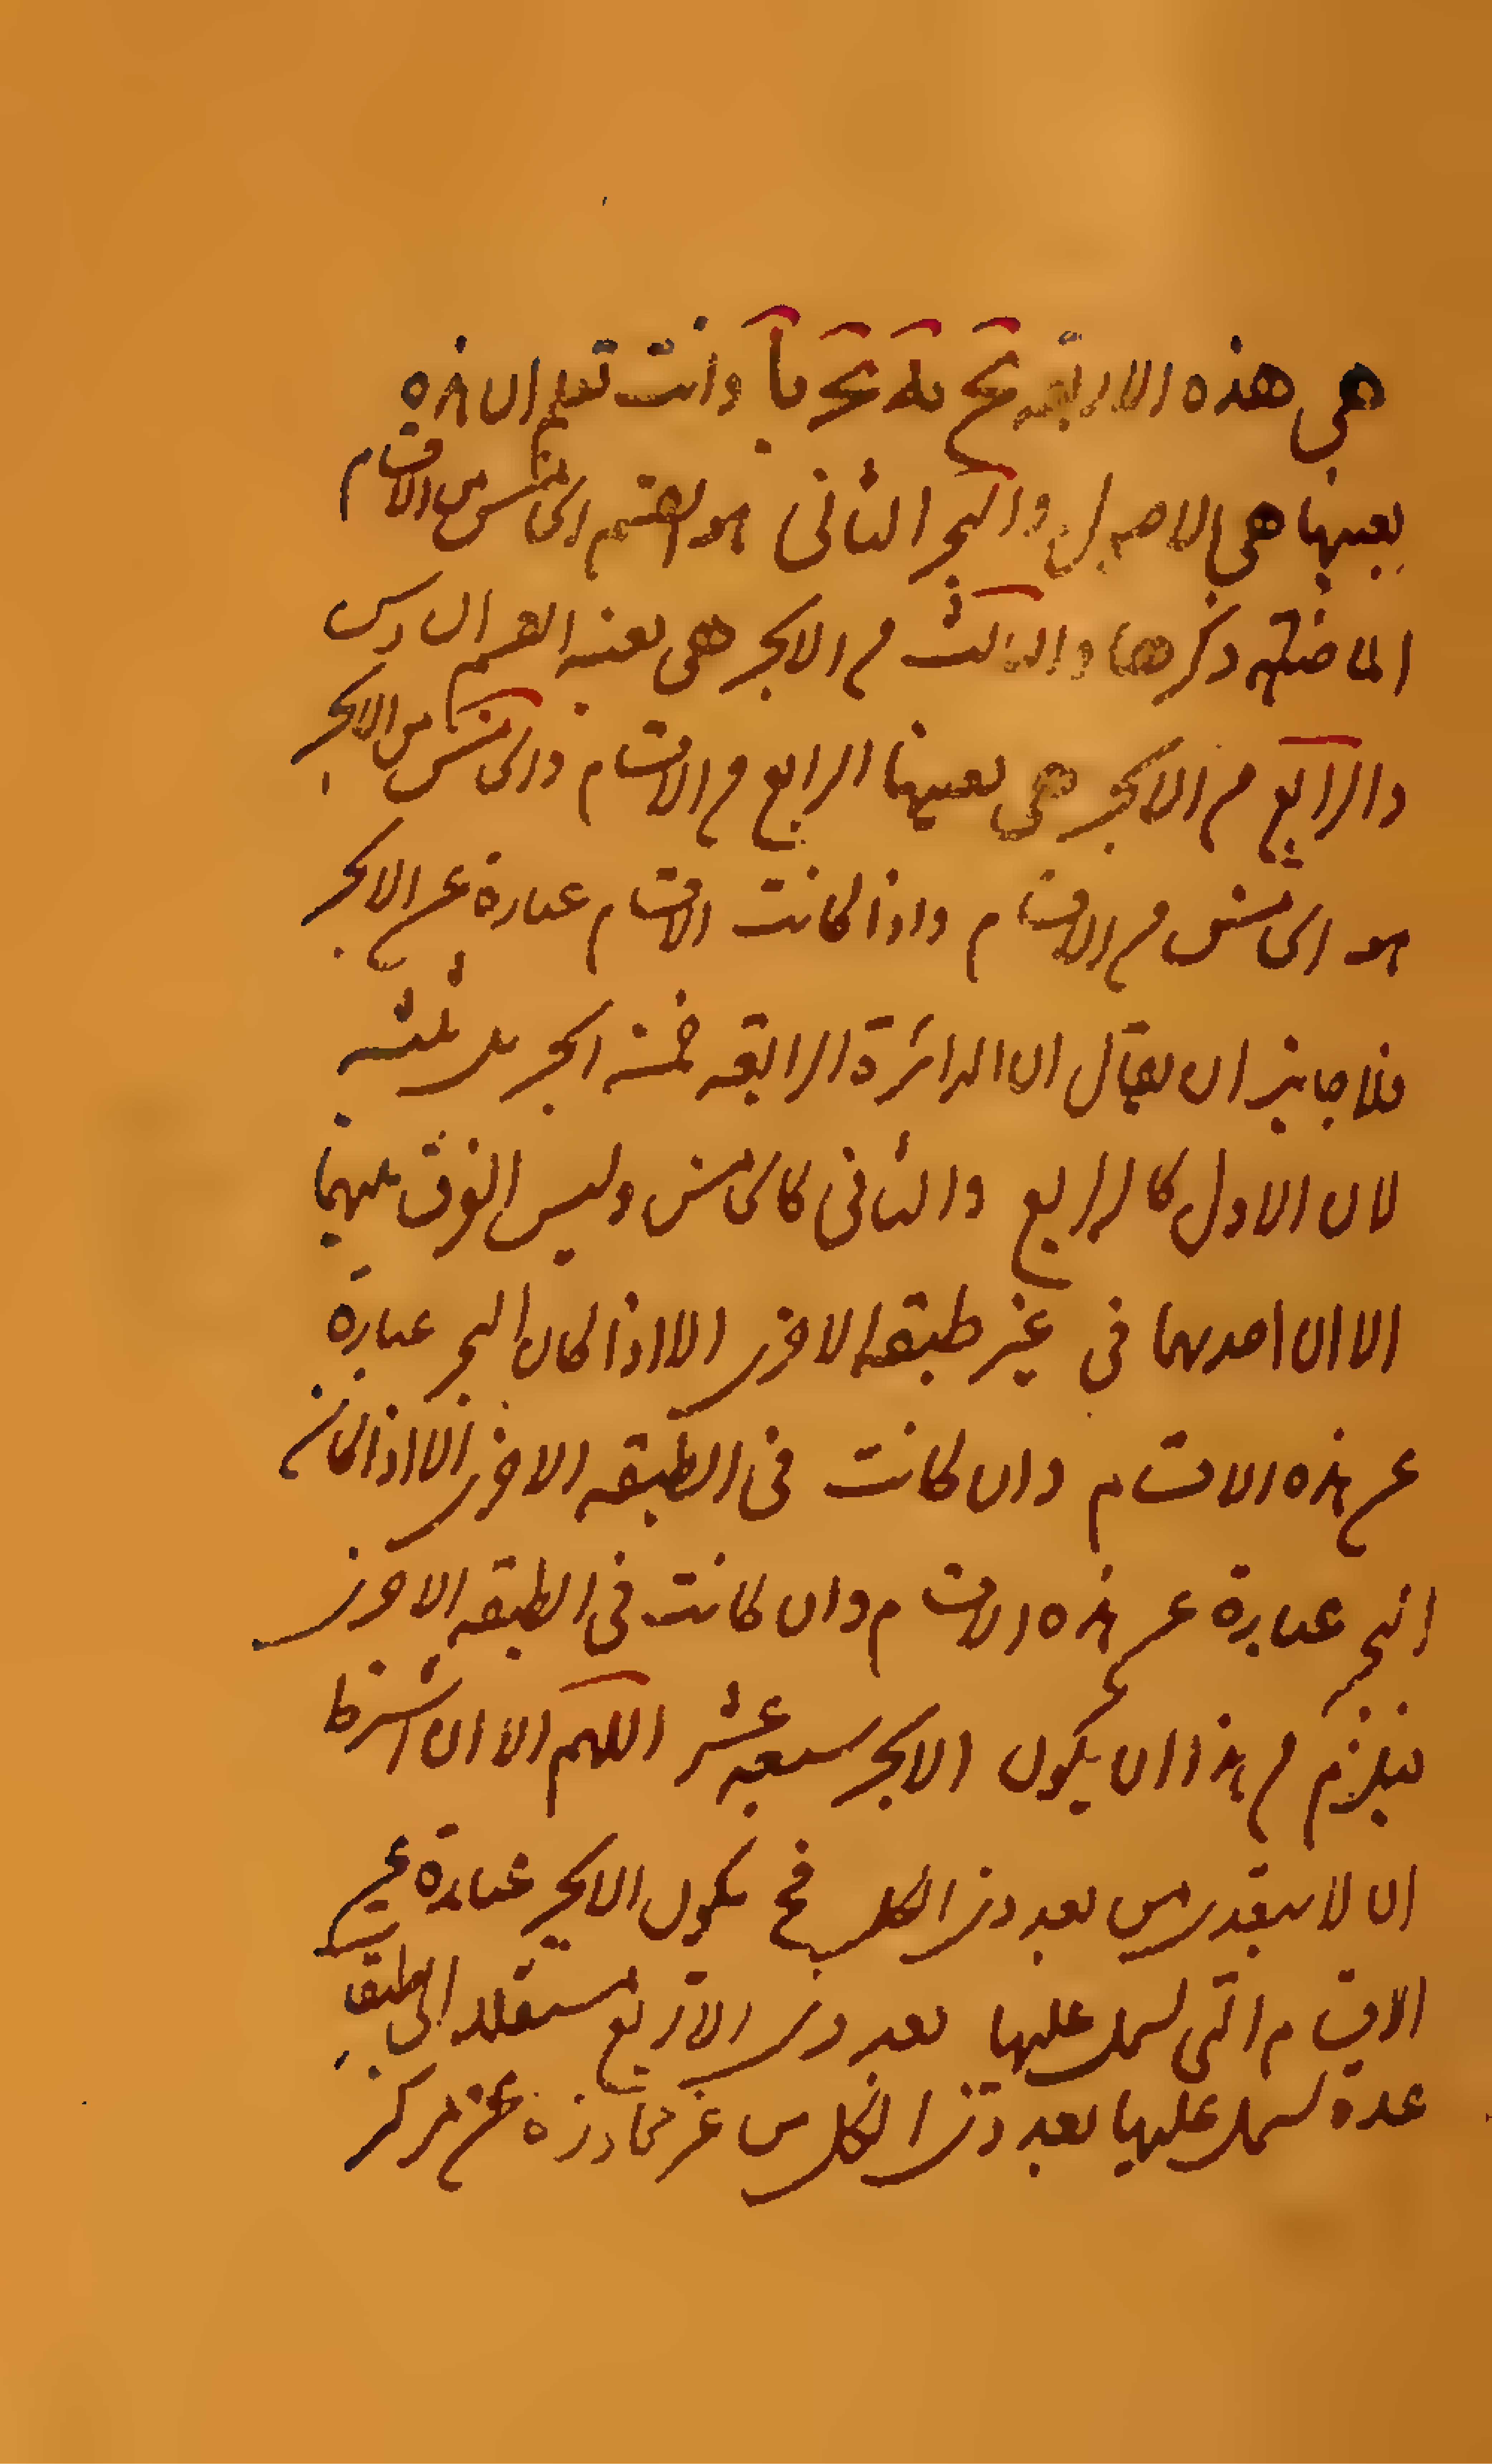 هي هذه الاربعه يح يه يح يا وانت تعلم ان ٨٥
بعينها هي الاصول والبحر الثاني هو القسم الخامس من الاقسام
الماضية ذكرها والثالث من الابحر هي بعينه القسم السادس
والرابع من الابحر هي بعينها الرابع من الاقسام والخامس من الابحر
هو الخامس من الاقسام واذا كانت الاقسام عبارة عن الابحر
فلا جايز ان يقال ان الدائرة الرابعه خمسة ابحر بل ثلثه
لان الاول كالرابع والثاني كالخامس وليس الفرق بينهما
الا ان احدهما في غير طبقه الاخرى الا اذا كان البحر عبارة
عن هذه الاقسام وان كانت في الطبقه الاخرى الا اذا كانت
البحر عبارة عن هذه الاقسام وان كانت في الطبقه الاخرى
فيلزم من هذا ان يكون الابحر سبعه عشر اللهم الا ان اشترط
ان لا يبتدى من بعد ذى الكل فح يكون الابحر عبارة عن
الاقسام التى تشمل عليها بعد ذى الاربع مستقله الى طبقات
عدة تشمل عليها بعد ذى الكل من غير مجاوزة عن مركز